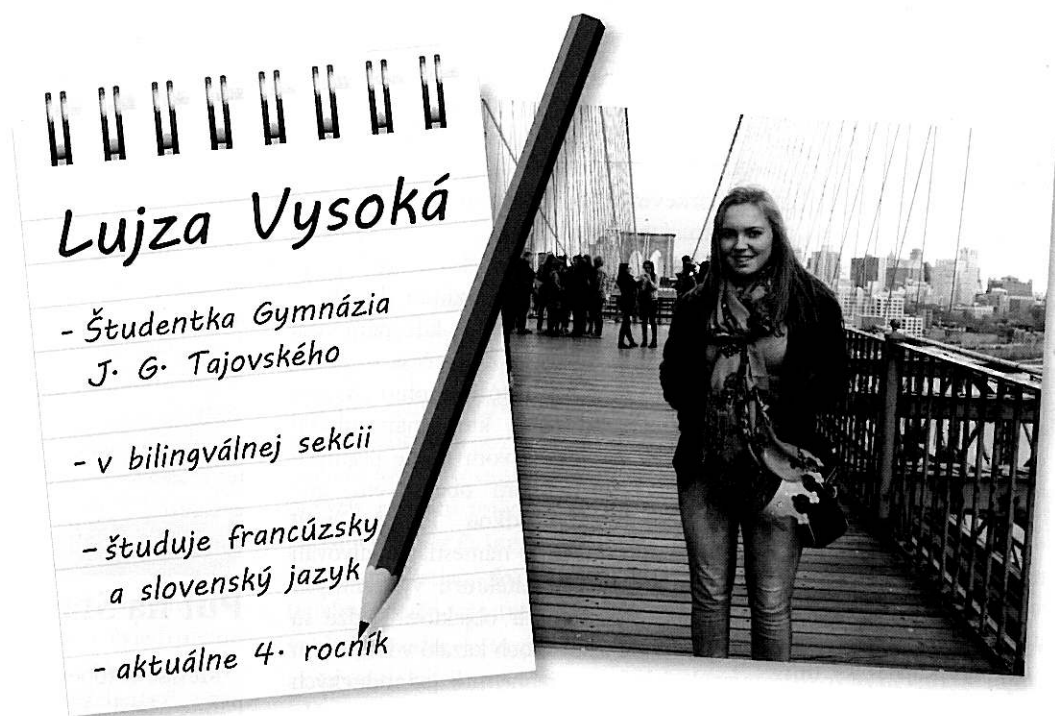 Lujza Vysoká
- Študentka Gymnázia
J. G. Tajovského
- v bilingválnej sekcii
- študuje francúzsky
a slovenský jazyk
- aktuálne 4. rocník